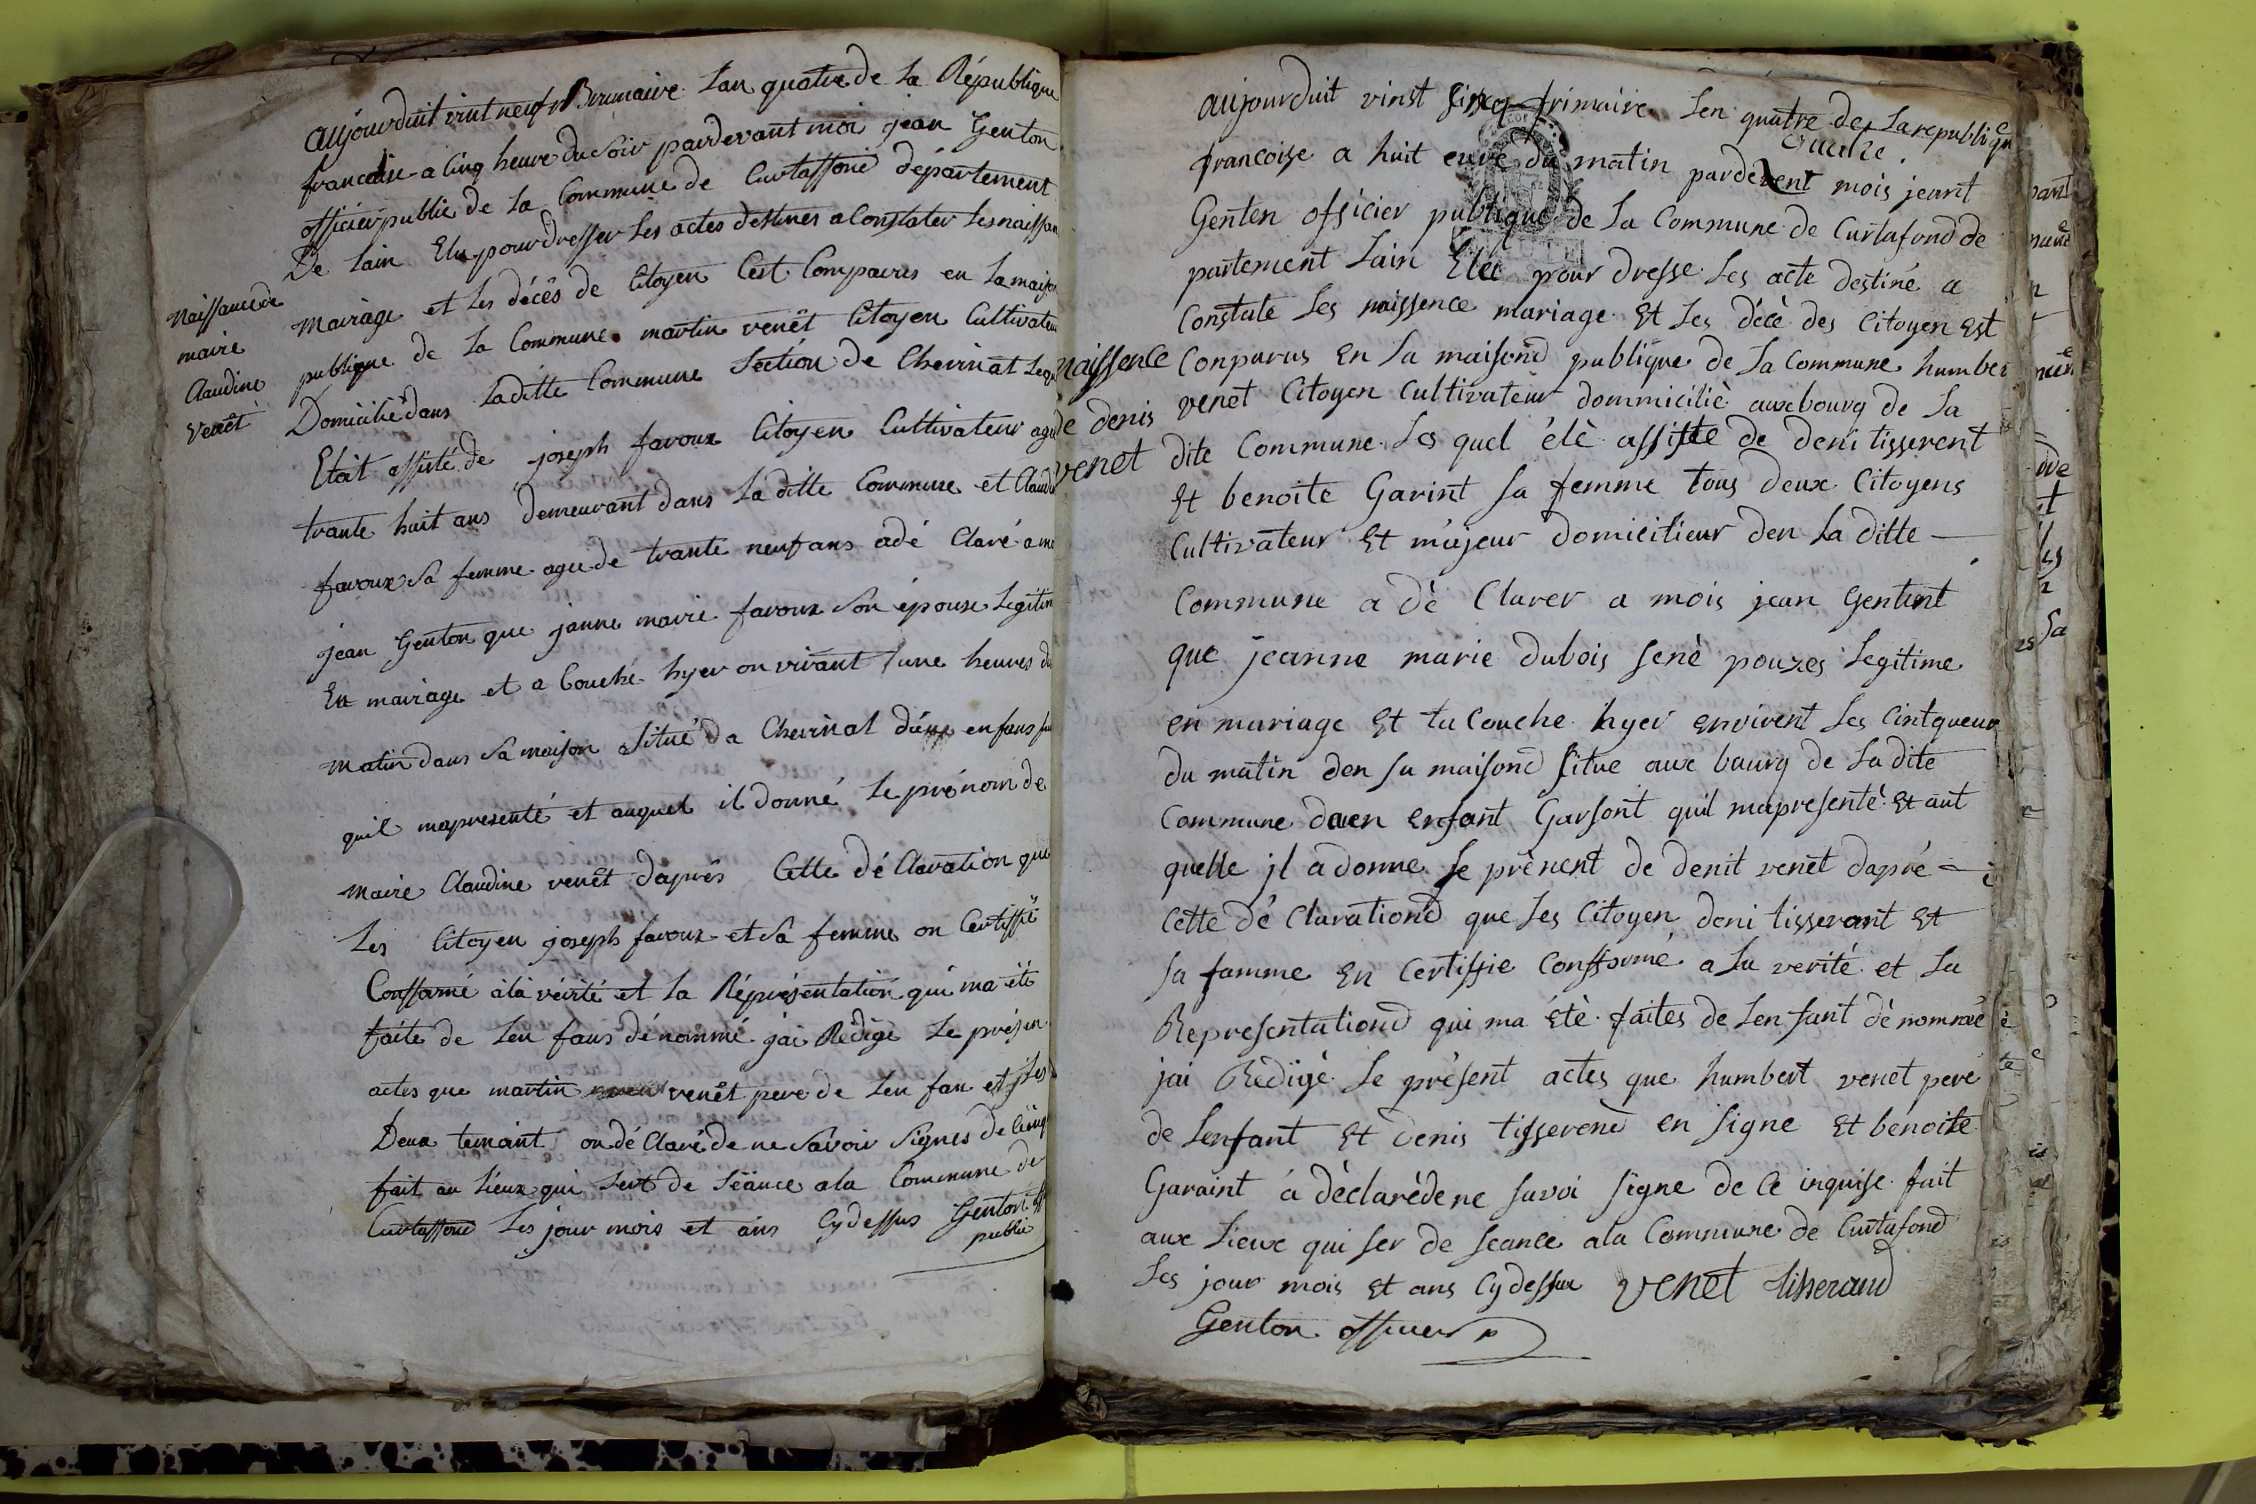 aujourduit vint neuf Brumaire lan quatre de la République
francaise a Cinq heure du Soir pardevant moi jean Genton
officier public de la Commune de Curtaffond département
De lain Elu pour dresser les actes destines a Constater les naissan
mairiage et les décês de Citoyen Cest Comparus en la maison
publique de la Commune martin venêt Citoyen Cultivateur
Domicilié dans laditte Commune Section de Chevinat lequ
Etait assisté de joseph favoux Citoyen Cultivateur agé
trante huit ans demeurant dans laditte Commune et Claudi
favoux Sa femme agée de trante neuf ans adé Claré a moi
jean Genton que janne mairie favoux Son épouse Legitim
En mairiage et a Couché hyer on vivant une heures du
matin dans Sa maison Situé da Chevinat dune enfans
quil mapresenté et auquel il donné le prénom de
Naissance de
maire
Claudine
venêt
maire Claudine venêt daprês Cette dé Claration que
Les Citoyen joseph favoux et Sa femme on Certiffié
Confformé àla vérité et la Réprésentation qui ma été
faite de Len fans dénommé jai Rédigé Le présen
actes que martin venêt pere de Len fan et les
Deux temoint on dé Claré de ne Savoir Signes de
fait au Lieux qui Sert de Séance ala Commune de
Curtaffond Les jour mois et ans Cydessus Genton off
public
aujourduit vinst Sincq frimaire Len quatre de Larepublique
francoise a huit eure du matin pardevent mois jeant
Genten officier publique de La Commune de Curtafond de
partement Lain Elec pour dresse Les acte destiné a
Constate Les naissence mariage Et Les décè des Citoyen Est
Conparus En La maisond publique de La Commune humber
venet Citoyen Cultivateur dommiciliè aux bourg de La
dite Commune Les quel élè assiste de deni tisserent
Et benoite Garint Sa femme tous deux Citoyens
Cultivateur Et májeur domicilieur den La ditte
naissence
de denis
venet
Commune a dè Clarer a mois jean Gentent
que jeanne marie dubois Senè pouzes Legitime
en mariage Et ta Couche hyer envirent Les Cintqueur
du matin den Sa maisond Situe aux bourg de Ladite
Commune duen Enfant Garsont quil mapresentè Et aut
quelle jl a donne Le prènent de denit venet dapré
Cette dé Clarationd que Les Citoyen deni tisserant Et
Sa famme En Certiffie Confformé a La verité et La
Representationd qui ma étè faites de Len fant dè nommé
jai Rèdigè Le prèsent actes que humbert venet pere
de Lenfant Et denis tisserend en Signe Et benoite
Garaint á dèclaréde ne Savoi Signe de Ce inquise fait
aux Lieux qui Ser de Seance ala Commune de Curtafond
Les jour mois Et ans Cydessux venet tisserand
Genton officier p